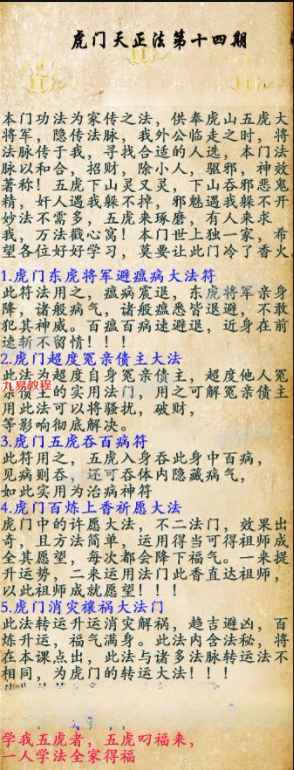 虎门天正法第十四期
本门功法为家传之法，供奉虎山五虎大
将军，隐传法脉，我外公临走之时，将
法脉传于我，寻找合适的人选，本门法
脉以和合，招财，除小人，驱邪，神效
著称！五虎下山灵又灵，下山吞邪恶鬼
精，奸人遇我躲不掉，邪魅遇我躲不开
妙法不需多，五虎来琢磨，有人来求
我，万法戳心窝！本门世上独一家，希
望各位好好学习，莫要让此门冷了香火
1.虎门东虎将军避瘟病大法符
此符法用之，瘟病震退，东虎将军亲身
降，诸般病气，诸般瘟恙皆退避，不敢
犯其神威。百瘟百病速避退，近身在前
速斩不留情！！！
2.虎门超度冤亲债主大法
此法为超度自身冤亲债主，超度他人冤
亲债主的实用法门，用之可解冤亲债主
用此法可以将骚扰，破财，
等影响彻底解决。
九易教程
3.虎门五虎吞百病符
此符用之，五虎入身吞此身中百病，
见病则吞，还可吞体内隐藏病气，
如此实用为治病神符
4.虎门百炼上香祈愿大法
虎门中的许愿大法，不二法门，效果出
奇，且方法简单，运用得当可得祖师成
全其愿望，每次都会降下福气。一来提
升运势，二来运用法门此香直达祖师，
以此祖师成就愿望！！！
5.虎门消灾禳祸大法门
此法转运升运消灾解祸，趋吉避凶，百
炼升运，福气满身。此法内含法秘，将
在本课点出，此法与诸多法脉转运法不
相同，为虎门的转运大法！！！
学我五虎者，五虎叼福来，
一人学法全家得福